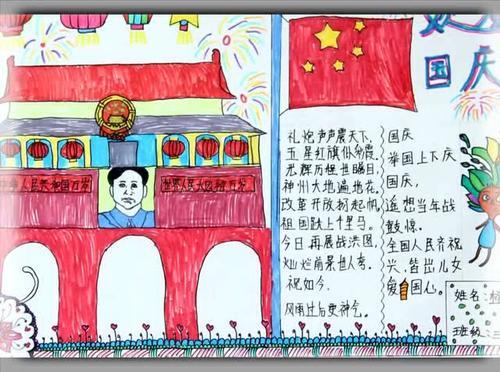 国庆
人民共和国万岁
世界人民大团结万岁
礼炮声声震天下，
五星红旗似彩霞。
光辉历程世瞩目，
神州大地遍地花。
改革开放扬起帆，
祖国跃上千里马。
今日再展战洪图，
灿烂前景世人夸。
祝如今，
风雨过后更神气。
国庆
举国上下庆
国庆，
遥想当年战
鼓惊。
全国人民齐祝
兴，皆出儿女
爱国心。
姓名:
班级:三